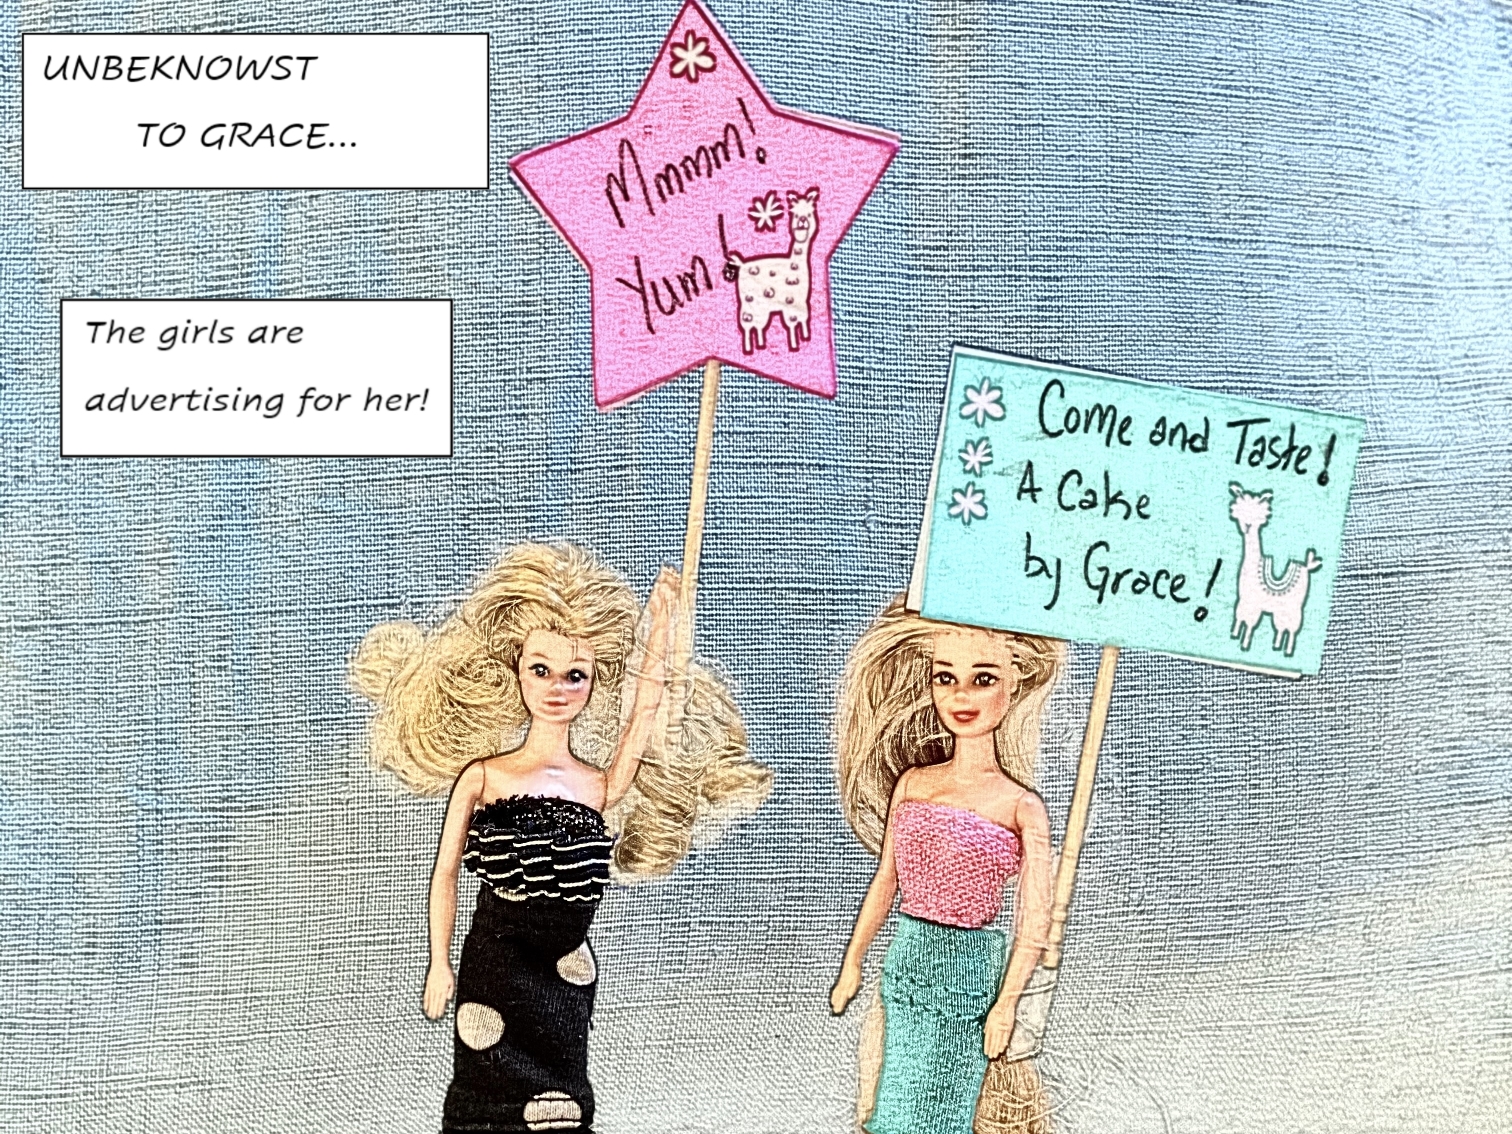 UNBEKNOWST
TO GRACE...
The girls are
advertising for her!
Mmmm!
Yum!
Come and Taste!
A Cake
by Grace!